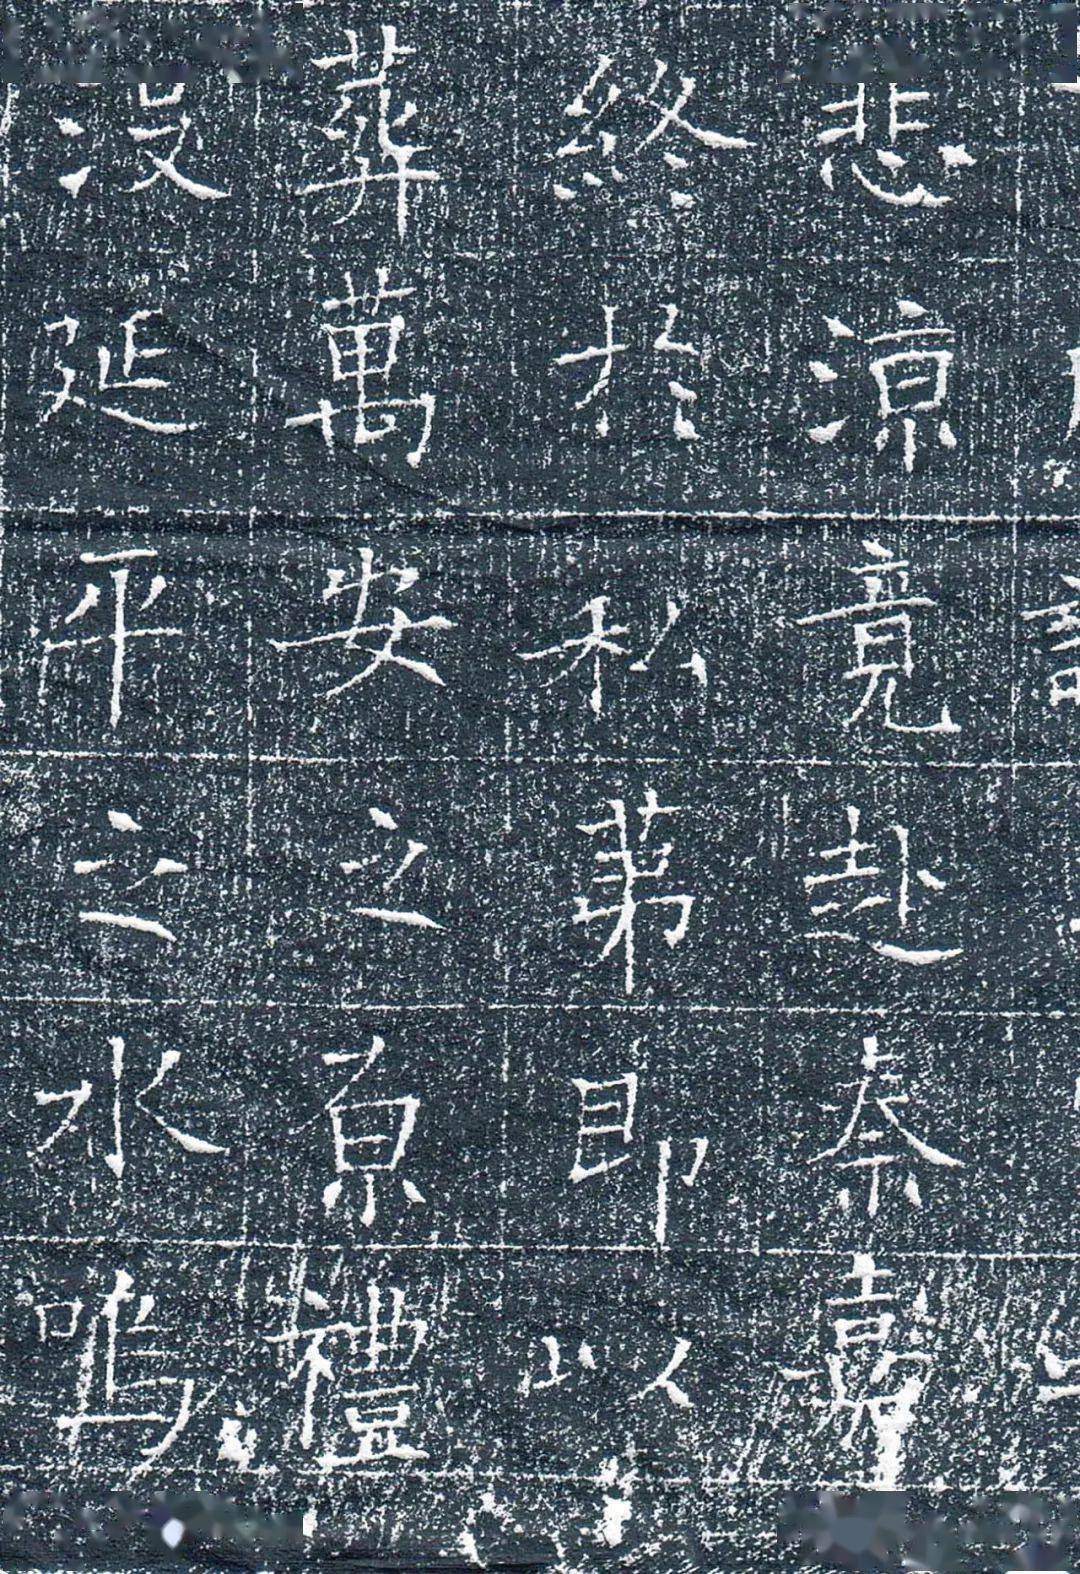 悲涼竟赴秦嘉
終於私第即以
葬萬安之原禮
没延平之水嗚